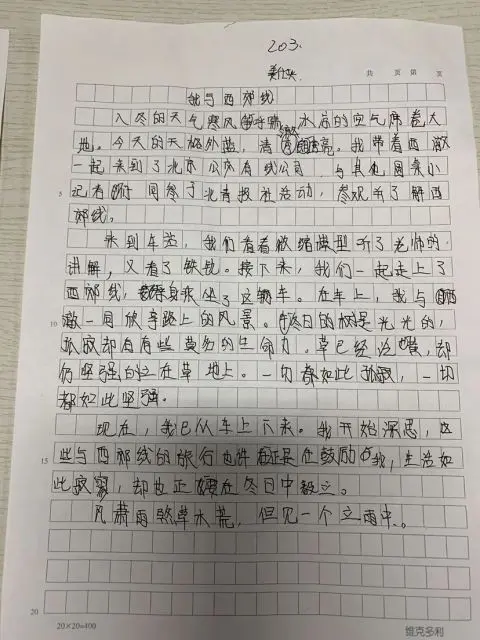 203.
共 页 第 页
我与西郊线
入冬的天气寒风呼啸,冰凉的空气席卷大
地。今天的天格外蓝,清亮。我带着西澈
一起来到了北京公交有线公司,与其他同来小
记者们一同参于北青报社活动,参观听了解西
郊线。
来到车站,我们看着微缩模型听了老师的
讲解,又看了铁轨。接下来,我们一起走上了
西郊线,亲身乘坐了这辆车。在车上,我与西
澈一同欣享路上的风景。冬日的树是光光的,
孤寂却有有些莫名的生命力。草已经泛黄,却
仍坚强的立在草地上。一切都如此孤寂,一切
都如此坚强。
现在,我已从车上下来。我开始深思,这
些与西郊线的旅行也许正是在鼓励我,生活如
此寂寥,却也正要在冬日中毅立。
风萧雨煞草木荒,但见一个立雨中。
5
10
15
20
20×20=400
维克多利